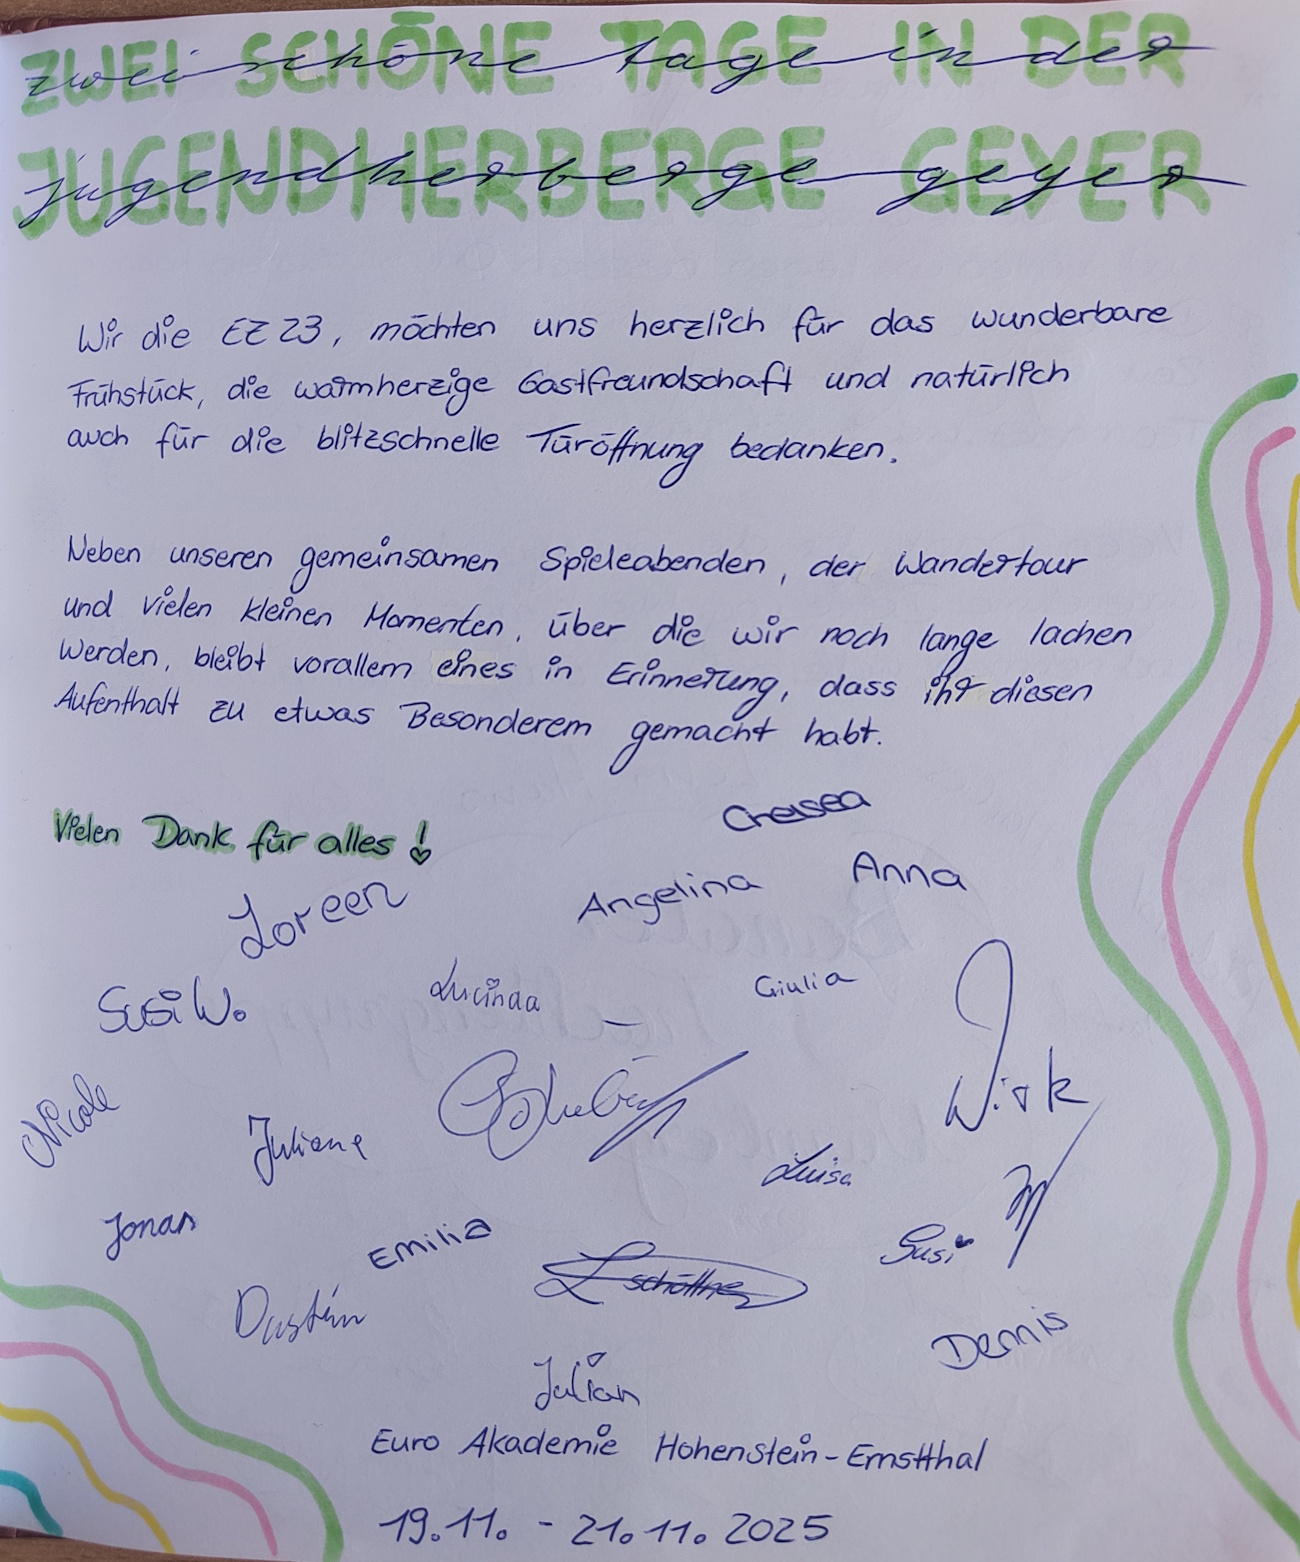 ZWEI SCHÖNE TAGE IN DER
zwei schöne tage in der
JUGENDHERBERGE GEYER
jugendherberge geyer
Wir die EZ 23, möchten uns herzlich für das wunderbare
Frühstück, die warmherzige Gastfreundschaft und natürlich
auch für die blitzschnelle Türöffnung bedanken.
Neben unseren gemeinsamen Spieleabenden, der Wandertour
und vielen kleinen Momenten, über die wir noch lange lachen
werden, bleibt vorallem eines in Erinnerung, dass ihr diesen
Aufenthalt zu etwas Besonderem gemacht habt.
Vielen Dank für alles!
Chelsea
Loreen
Angelina
Anna
Susi W.
Lucinda
Giulia
Nicole
Juliane
Dirk
Luisa
Jonas
Emilia
Susi
L schöttne
Dustin
Dennis
Julian
Euro Akademie Hohenstein-Ernstthal
19.11. - 21.11.2025